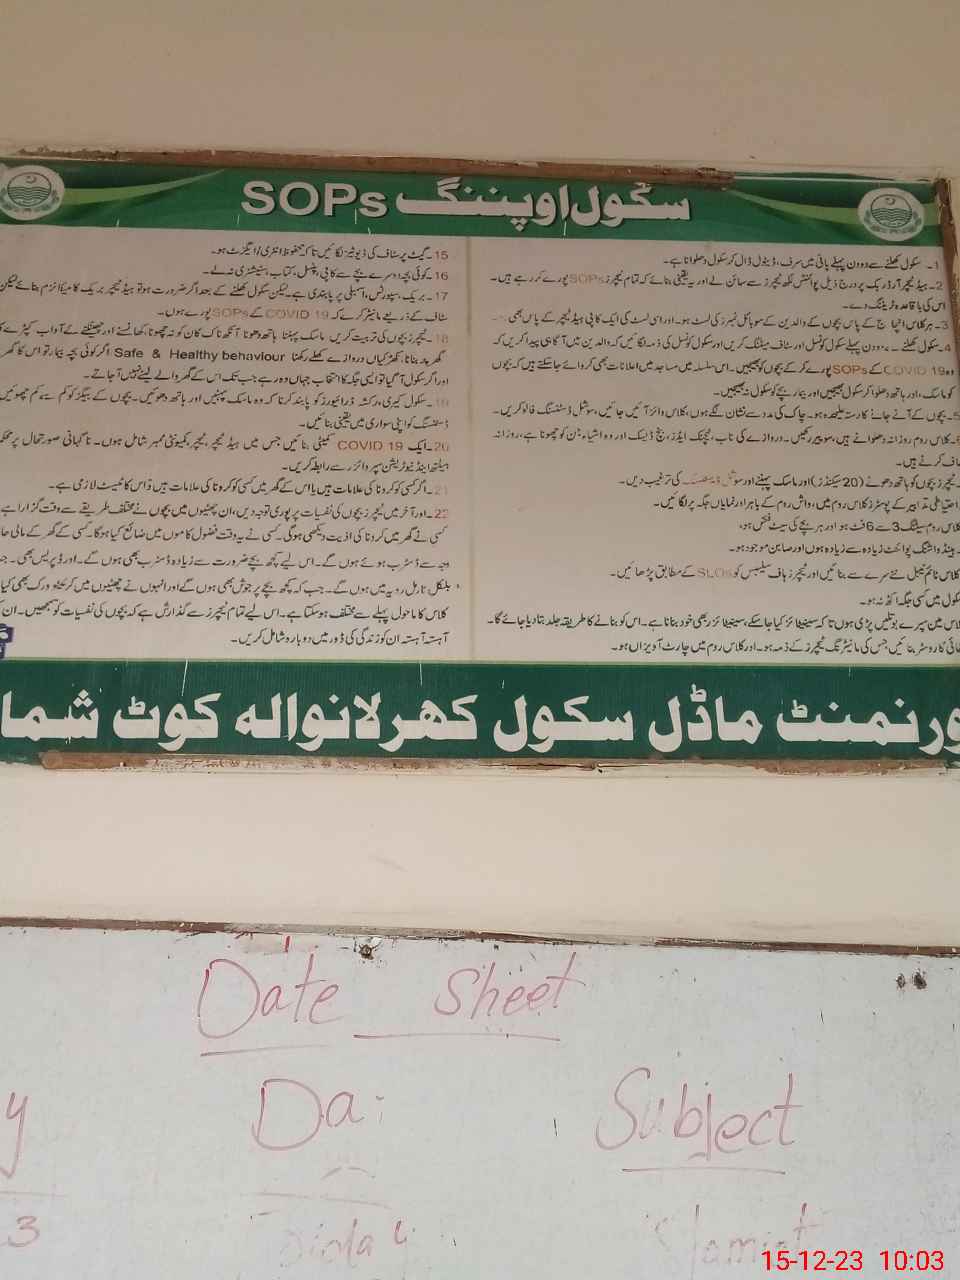 سکول اوپننگ SOPs
1۔ سکول کھلنے سے دو دن پہلے پانی میں سرف، ڈیٹول ڈال کر سکول دھلوانا ہے۔
2۔ ہیڈ ٹیچر آرڈر بک پر درج ذیل پوائنٹس لکھ ٹیچرز سے سائن لے اور یہ یقینی بنائے کہ تمام ٹیچرز SOPs پورے کر رہے ہیں۔
اس کی باقاعدہ ٹریننگ دے۔
3۔ ہر کلاس انچارج کے پاس بچوں کے والدین کے موبائل نمبرز کی لسٹ ہو۔ اور اسی لسٹ کی ایک کاپی ہیڈ ٹیچر کے پاس بھی
4۔ سکول کھلنے سے دو دن پہلے سکول کونسل اور سٹاف میٹنگ کریں اور سکول کونسل کی ذمہ لگائیں کہ والدین میں آگاہی پیدا کریں کہ
وہ COVID 19 کے SOPs پورے کر کے بچوں کو بھیجیں۔ اس سلسلہ میں مساجد میں اعلانات بھی کروائے جا سکتے ہیں کہ بچوں
کو ماسک، اور ہاتھ دھلوا کر سکول بھیجیں اور بیمار بچے کو سکول نہ بھیجیں۔
5۔ بچوں کے آنے جانے کا رستہ علیحدہ ہو۔ چاک کی مدد سے نشان لگے ہوں، کلاس وائز آئیں جائیں، سوشل ڈسٹنسنگ فالو کریں۔
6۔ کلاس روم روزانہ دھلوانے ہیں، سوپر رکھیں۔ دروازے کی ناب، ٹیچنگ ایڈز، بنچ ڈیسک اور وہ اشیاء جن کو چھونا ہے، روزانہ
صاف کرنے ہیں۔
ٹیچرز بچوں کو ہاتھ دھونے (20 سیکنڈز) اور ماسک پہننے اور سوشل ڈسٹنسنگ کی ترغیب دیں۔
احتیاطی تدابیر کے پوسٹرز کلاس روم میں، واش روم کے باہر اور نمایاں جگہ پر لگائیں۔
کلاس روم سیٹنگ 3 سے 6 فٹ ہو اور ہر بچے کی سیٹ فکس ہو،
ہینڈ واشنگ پوائنٹ زیادہ سے زیادہ ہوں اور صابن موجود ہو۔
کلاس ٹائم ٹیبل نئے سرے سے بنائیں اور ٹیچرز ہاف سلیبس کو SLOs کے مطابق پڑھائیں۔
سکول میں کسی جگہ اکٹھ نہ ہو۔
کلاس میں سپرے بوتلیں پڑی ہوں تا کہ سینیٹائز کیا جا سکے، سینیٹائزر بھی خود بنانا ہے۔ اس کو بنانے کا طریقہ جلد بتا دیا جائے گا۔
صفائی کا روسٹر بنائیں جس کی مانیٹرنگ ٹیچرز کے ذمہ ہو۔ اور کلاس روم میں چارٹ آویزاں ہو۔
15۔ گیٹ پر سٹاف کی ڈیوٹیز لگائیں تا کہ محفوظ انٹری/ایگزٹ ہو۔
16۔ کوئی بچہ دوسرے بچے سے کاپی، پنسل، کتاب، اسٹیشنری نہ لے۔
17۔ بریک، سپورٹس، اسمبلی پر پابندی ہے۔ لیکن سکول کھلنے کے بعد اگر ضرورت ہو تو ہیڈ ٹیچر بریک کا میکانزم بنائے لیکن
سٹاف کے ذریعے مانیٹر کرے کہ COVID 19 کے SOPs پورے ہوں۔
18۔ ٹیچرز بچوں کی تربیت کریں ماسک پہننا، ہاتھ دھونا، آنکھ ناک کان کو نہ چھونا، کھانسنے اور چھینکنے کے آداب کپڑے
گھر جلد بنانا، کھڑکیاں دروازے کھلے رکھنا Safe & Healthy behaviour اگر کوئی بچہ بیمار ہو تو اس کا گھر
اور اگر سکول آ گیا تو ایسی جگہ کا انتخاب جہاں وہ رہے جب تک اس کے گھر والے لینے نہیں آ جاتے۔
19۔ سکول کیری، رکشہ ڈرائیورز کو پابند کرنا کہ وہ ماسک پہنیں اور ہاتھ دھوئیں۔ بچوں کے بیگز کو کم سے کم چھوئیں
ڈسٹنسنگ کو اپنی سواری میں یقینی بنائیں۔
20۔ ایک COVID 19 کمیٹی بنائیں جس میں ہیڈ ٹیچر، ٹیچر، کمیونٹی ممبر شامل ہوں۔ ناگہانی صورتحال پر محکمہ
ہیلتھ اینڈ نیوٹریشن سپروائزر سے رابطہ کریں۔
21۔ اگر کسی کو کرونا کی علامات ہیں یا اس کے گھر میں کسی کو کرونا کی علامات ہیں تو اس کا ٹیسٹ لازمی ہے۔
22۔ اور آخر میں ٹیچرز بچوں کی نفسیات پر پوری توجہ دیں، ان چھٹیوں میں بچوں نے مختلف طریقے سے وقت گزارا ہے
کسی نے گھر میں کرونا کی اذیت دیکھی ہوگی۔ کسی نے یہ وقت فضول کاموں میں ضائع کیا ہوگا۔ کسی کے گھر کے مالی حالات
وجہ سے ڈسٹرب ہوئے ہوں گے۔ اس لیے کچھ بچے ضرورت سے زیادہ ڈسٹرب بھی ہوں گے۔ اور ڈپریس بھی۔
بلکل نارمل رویہ میں ہوں گے۔ جب کہ کچھ بچے پرجوش بھی ہوں گے اور انہوں نے چھٹیوں میں کریٹیو ورک بھی کیا
کلاس کا ماحول پہلے سے مختلف ہو سکتا ہے۔ اس لیے تمام ٹیچرز سے گذارش ہے کہ بچوں کی نفسیات کو سمجھیں۔ ان
آہستہ آہستہ ان کو زندگی کی ڈور میں دوبارہ شامل کریں۔
ورنمنٹ ماڈل سکول کھرلانوالہ کوٹ شما
Date Sheet
y Da: Subject
3
15-12-23 10:03